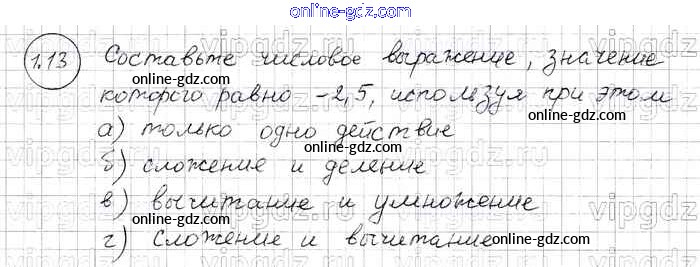 online-gdz.com
1.13 Составьте числовое выражение, значение
online-gdz.com online-gdz.com
которого равно -2,5, используя при этом
online-gdz.com
а) только одно действие
online-gdz.com
б) сложение и деление
online-gdz.com
в) вычитание и умножение
online-gdz.com
г) сложение и вычитание online-gdz.com